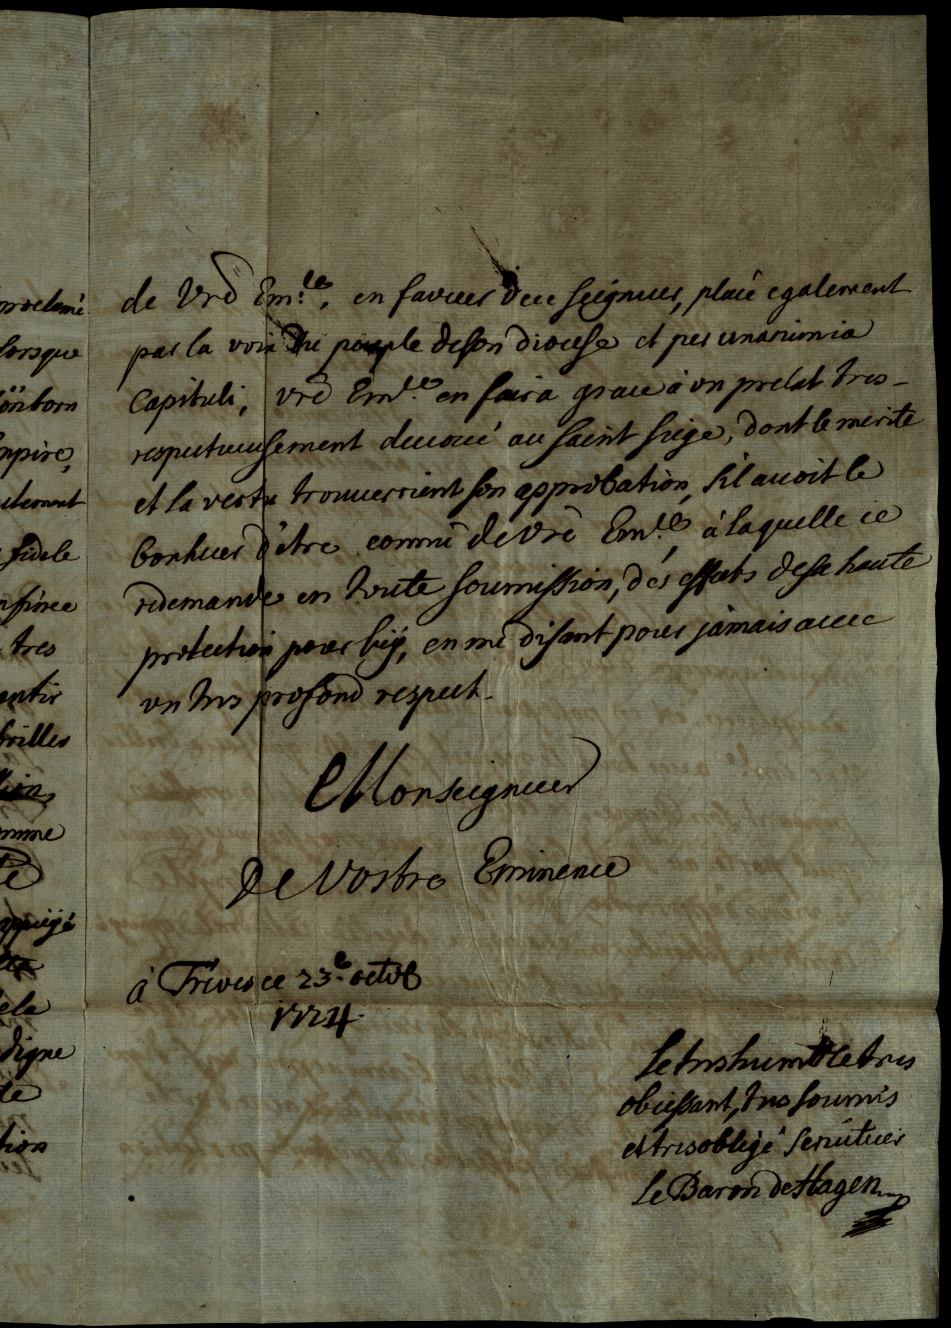 proclamé
lorsque
önborn
mpire,
fidele
tres
entir
brilles
omme
appuÿé
dela
digne
de
tion
de Vrê Em.ce, en faveur d'un seigneur, placé egalement
par la voix du peuple de son diocese et per unanimia
Capituli, vrê Em.ce en faira grace à un prelat tres-
respectueusement devoué au saint siege, dont le merite
et la vertu trouveroient son approbation, s'il avoit le
bonheur d'être connu de Vrê Em.ce, à laquelle ie
redemande en toute soumission, des effects de sa haute
protection pour luÿ, en me disant pour jamais avec
un tres profond respect.
Monseigneur
De Vostre Eminence
à Treves ce 23.e octob
1724.
Le tres humble tres
obeissant, tres soumis
et tres obligé serviteur
Le Baron de Hagen